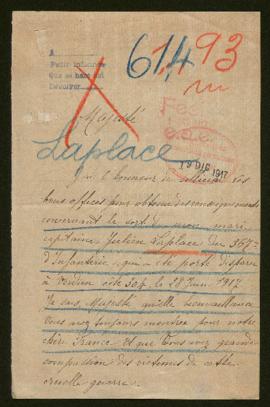 61,493
Petit
Majesté
Laplace
19 DIC 1917
J'ai l'honneur de solliciter vos
bons offices pour obtenir des renseignements
concernant le sort de mon mari
capitaine Julien Laplace du 367e
d'Infanterie, qui a été porté disparu
à Verdun cote 304 le 28 Juin 1917
Je sais, Majesté quelle bienveillance
vous avez toujours montrée pour notre
chère France et que vous avez grande
compassion des victimes de cette
cruelle guerre.